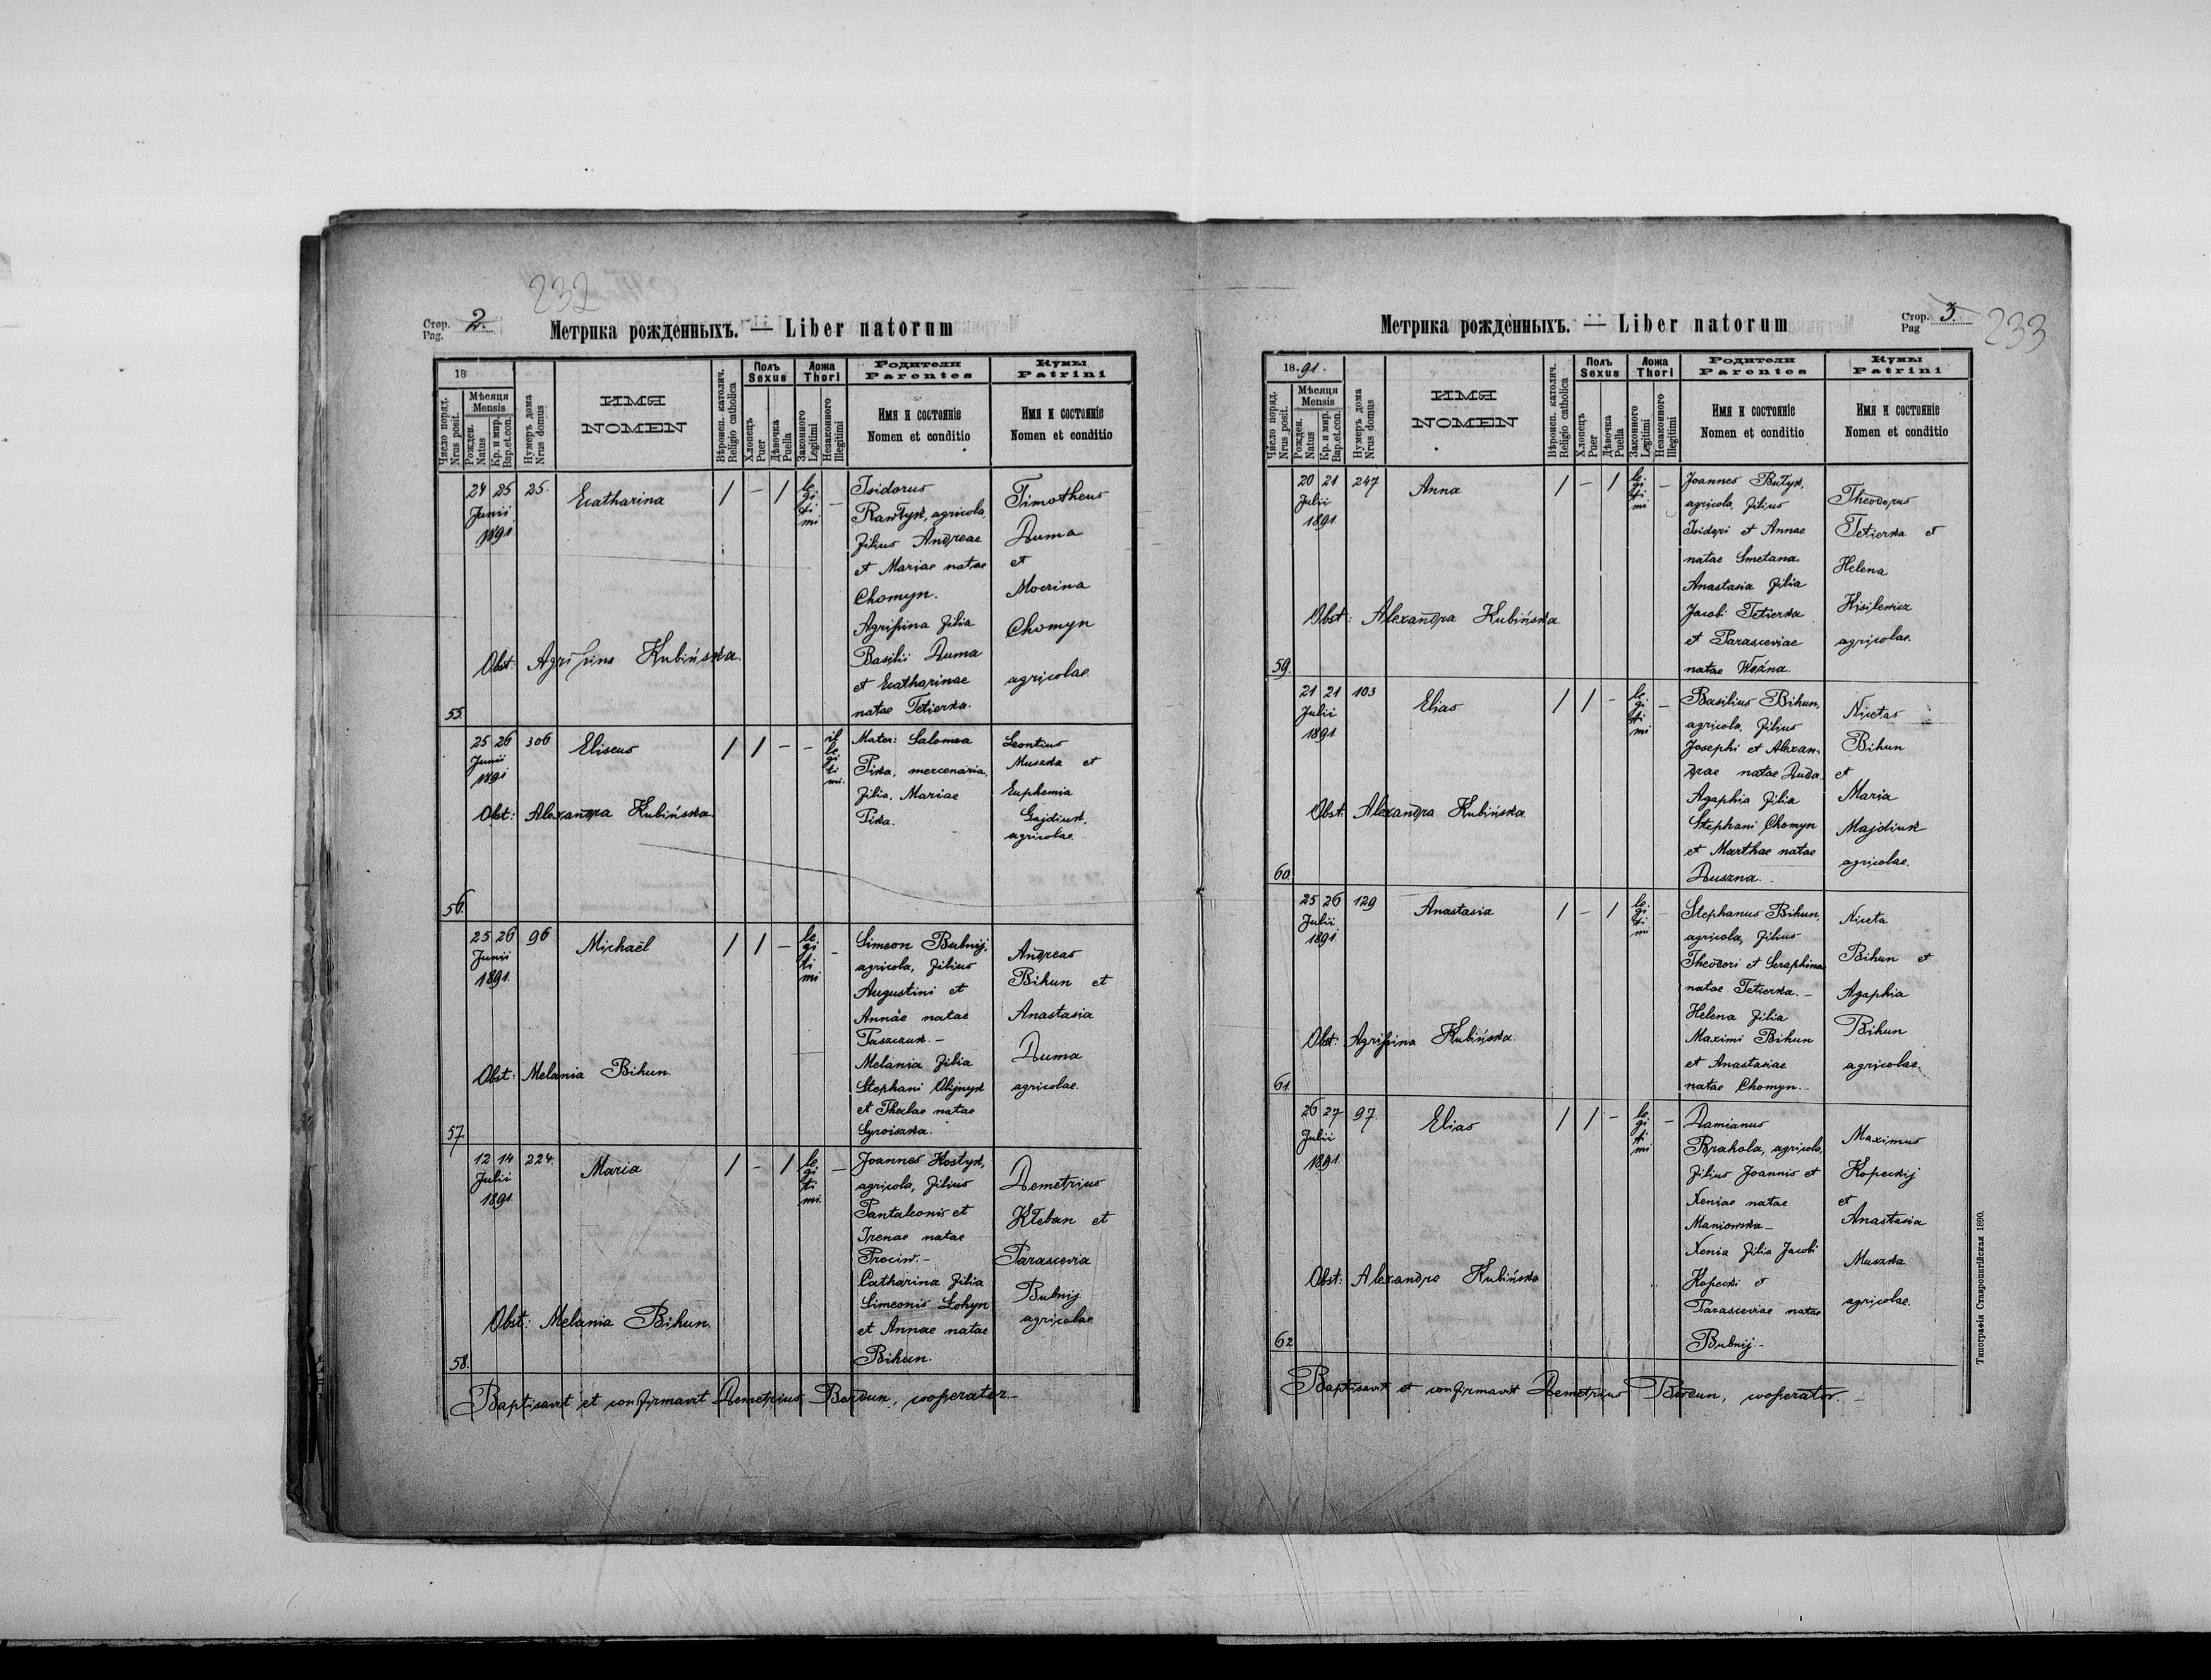 232
Стор. Pag. 2.
Метрика рожденныхъ. — Liber natorum
18
Число поряд. Nrus posit.
Мѣсяця Mensis
Рожден. Natus
Кр. и мир. Bap. et con.
Нумеръ дома Nrus domus
ИМЯ
NOMEN
Вѣроисп. католич. Religio catholica
Полъ Sexus
Хлопецъ Puer
Дѣвочка Puella
Ложа Thori
Законного Legitimi
Незаконного Illegitimi
Родители
Parentes
Имя и состояніе
Nomen et conditio
Кумы
Patrini
Имя и состояніе
Nomen et conditio
55.
24 25
Junii
1891
25.
Ecatharina
/ - /
legitimi
-
Isidorus
Rawłyk, agricola,
filius Andreae
et Mariae natae
Chomyn.
Agripina filia
Basilii Duma
et Ecatharinae
natae Tetierka.
Timotheus
Duma
et
Mocrina
Chomyn
agricolae
Obst: Agripina Kubińska.
56.
25 26
Junii
1891
306
Eliseus
/ / - -
illegitimi.
Mater: Salomea
Pika, mercenaria,
filia, Mariae
Pika.
Leontius
Muszka et
Euphemia
Gajdiuk,
agricolae.
Obst: Alexandra Kubińska.
57.
25 26
Junii
1891.
96
Michaël
/ / -
legitimi
-
Simeon Bubnij,
agricola, filius
Augustini et
Annae natae
Paszczuk. -
Melania filia
Stephani Olijnyk
et Theclae natae
Syroiszka.
Andreas
Bihun et
Anastasia
Duma
agricolae.
Obst: Melania Bihun.
58.
12 14
Julii
1891.
224.
Maria
/ - /
legitimi.
-
Joannes Kostyk,
agricola, filius
Pantaleonis et
Irenae natae
Prociw. -
Catharina filia
Simeonis Łohyn
et Annae natae
Bihun.
Demetrius
Kłeban et
Parascevia
Bubnij
agricolae
Obst: Melania Bihun.
Baptisavit et confirmavit Demetrius Bordun, cooperator. -
Метрика рожденныхъ. — Liber natorum
Стор. Pag 3.
233
1891.
Число поряд. Nrus posit.
Мѣсяця Mensis
Рожден. Natus
Кр. и мир. Bap. et con.
Нумеръ дома Nrus domus
ИМЯ
NOMEN
Вѣроисп. католич. Religio catholica
Полъ Sexus
Хлопецъ Puer
Дѣвочка Puella
Ложа Thori
Законного Legitimi
Незаконного Illegitimi
Родители
Parentes
Имя и состояніе
Nomen et conditio
Кумы
Patrini
Имя и состояніе
Nomen et conditio
59.
20 21
Julii
1891
247
Anna
/ - /
legitimi
-
Joannes Butyk,
agricola, filius
Isidori et Annae
natae Smetana.
Anastasia filia
Jacobi Tetierka
et Parasceviae
natae Woźna.
Theodorus
Tetierka et
Helena
Kisilewicz
agricolae.
Obst: Alexandra Kubińska
60.
21 21
Julii
1891
103
Elias
/ / -
legitimi
-
Basilius Bihun,
agricola, filius
Josephi et Alexan-
drae natae Duda.
Agaphia filia
Stephani Chomyn
et Marthae natae
Duszna. -
Nicetas
Bihun
et
Maria
Majdiuk
agricolae.
Obst: Alexandra Kubińska.
61.
25 26
Julii
1891.
129
Anastasia
/ - /
legitimi
-
Stephanus Bihun,
agricola, filius
Theodori et Seraphinae
natae Tetierka. -
Helena filia
Maximi Bihun
et Anastasiae
natae Chomyn. -
Niceta
Bihun et
Agaphia
Bihun
agricolae.
Obst: Agripina Kubińska.
62
26 27
Julii
1891.
97
Elias
/ / -
legitimi
-
Damianus
Brahola, agricola,
filius Joannis et
Xeniae natae
Maniowska -
Xenia filia Jacobi
Kopecki et
Parasceviae natae
Bubnij. -
Maximus
Kopeckij
et
Anastasia
Muszka
agricolae.
Obst: Alexandra Kubińska
Baptisavit et confirmavit Demetrius Bordun, cooperator. -
Типографія Ставропигійская 1890.